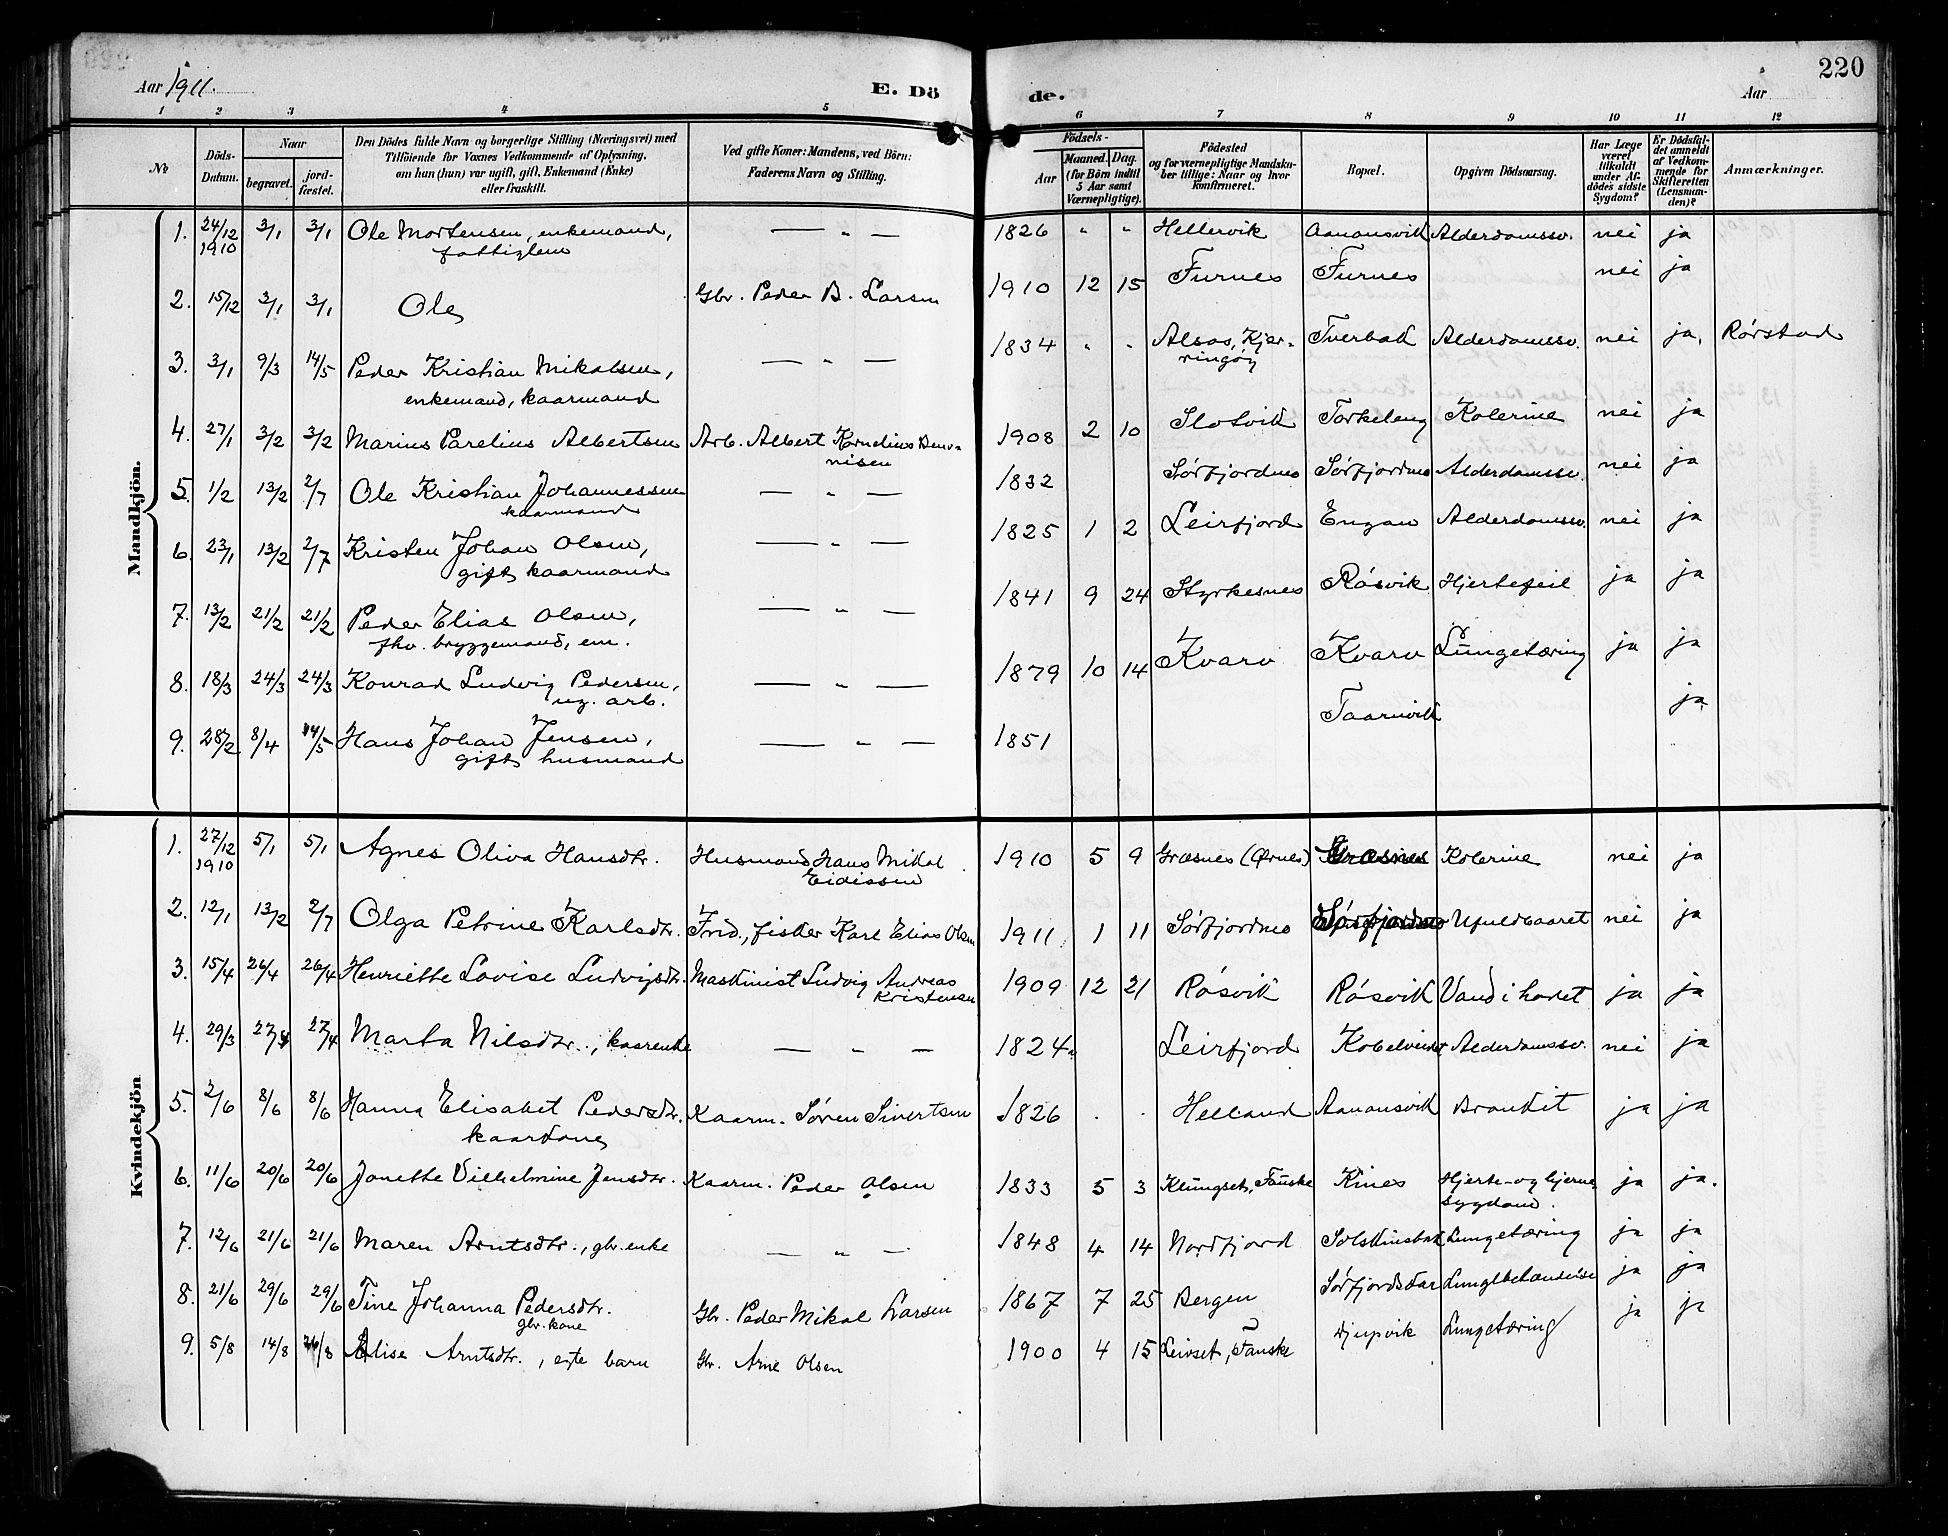 220
Aar 1911.
E. Dö de.
Aar
1 2 3 4 5 6 7 8 9 10 11 12
No
Döds-Datum.
Naar
begravet.
jord-fæstet.
Den Dödes fulde Navn og borgerlige Stilling (Næringsvei) med
Tilföiende for Voxnes Vedkommende af Oplysning,
om han (hun) var ugift, gift, Enkemand (Enke)
eller fraskilt.
Ved gifte Koner: Mandens, ved Börn:
Faderens Navn og Stilling.
Födsels-
Aar
Maaned. Dag.
(for Börn indtil
5 Aar samt
Værnepligtige).
Födested
og for værnepligtige Mandska-
ber tillige: Naar og hvor
konfirmeret.
Bopæl.
Opgiven Dödsaarsag.
Har Læge
været
tilkaldt
under Af-
dödes sidste
Sygdom?
Er Dödsfal-
det anmeldt
af Vedkom-
mende for
Skifteretten
(Lensman-
den)?
Anmærkninger.
Mandkjön.
1. 24/12 1910 3/1 3/1 Ole Mortensen, enkemand, — " — 1826 " " Hellervik Aanonsvik Alderdomssv. nei ja
fattiglem
2. 15/12 3/1 3/1 Ole Gbr. Peder B. Larsen 1910 12 15 Furnes Furnes nei ja
3. 3/1 9/3 14/5 Peder Kristian Mikalsen, — " — 1834 " " Alsos, Kjer- Tverbak Alderdomssv. nei ja, Rørstad
ringøy
enkemand, kaarmand
4. 27/1 3/2 3/2 Marius Parelius Albertsen Arb. Albert Kornelius Benо- 1908 2 10 Slotvik Torkeleng Kolerine nei ja
nisen
5. 1/2 13/2 2/7 Ole Kristian Johannessen — " — 1832 Sørfjordnes Sørfjordnes Alderdomssv. nei ja
kaarmand
6. 23/1 13/2 2/7 Kristen Johan Olsen, — " — 1825 1 2 Leirfjord Engan Alderdomssv. nei ja
gift kaarmand
7. 13/2 21/2 21/2 Peder Elias Olsen, — " — 1841 9 24 Styrkesnes Røsvik Hjertefeil ja ja
fhv. bryggemand, em.
8. 18/3 24/3 24/3 Konrad Ludvig Pedersen, — " — 1879 10 14 Kvarv Kvarv Lungetæring ja ja
ug. arb.
9. 28/2 8/4 14/5 Hans Johan Jensen, — " — 1851 Taarnvik ja
gift husmand
Kvindekjön
1. 27/12 1910 5/1 5/1 Agnes Oliva Hansdtr. Husmand Hans Mikal 1910 5 9 Græsnes (Ørnes) Græsnes Kolerine nei ja
Eidissen
2. 12/1 13/2 2/7 Olga Petrine Karlsdtr. Ind., fisker Karl Elias Olsen 1911 1 11 Sørfjordnes Sørfjordnes Ufuldbaaret nei ja
3. 15/4 26/4 26/4 Henriette Lovise Ludvigsdtr. Maskinist Ludvig Andreas 1909 12 21 Røsvik Røsvik Vand i hovet ja ja
Kristensen
4. 29/3 27/4 27/4 Marta Nilsdtr., kaarenke — " — 1824 Leirfjord Kobelveidet Alderdomssv. nei ja
5. 2/6 8/6 8/6 Hanna Elisabet Pedersdtr. Kaarm. Søren Sivertsen 1826 . . Helland Aanonsvik Bronkit ja ja
kaarkone
6. 11/6 20/6 20/6 Jonette Vilhelmine Jensdtr. Kaarm. Peder Olsen 1833 5 3 Klungset, Fauske Kines Hjerte- og hjerne- ja ja.
sygdom.
7. 12/6 21/6 21/6 Maren Arntsdtr., gbr. enke — " — 1848 4 14 Nordfjord Solskinsbak Lungetæring ja ja
8. 21/6 29/6 29/6 Tine Johanna Pedersdtr. Gbr. Peder Mikal Larsen 1867 7 25 Bergen Sørfjordsdar Lungebetændelse ja ja
gbr. kone
9. 5/8 14/8 /8 Elise Arntsdtr., egte barn Gbr. Arne Olsen 1900 4 15 Leivset, Fauske Djupvik Lungetæring ja ja